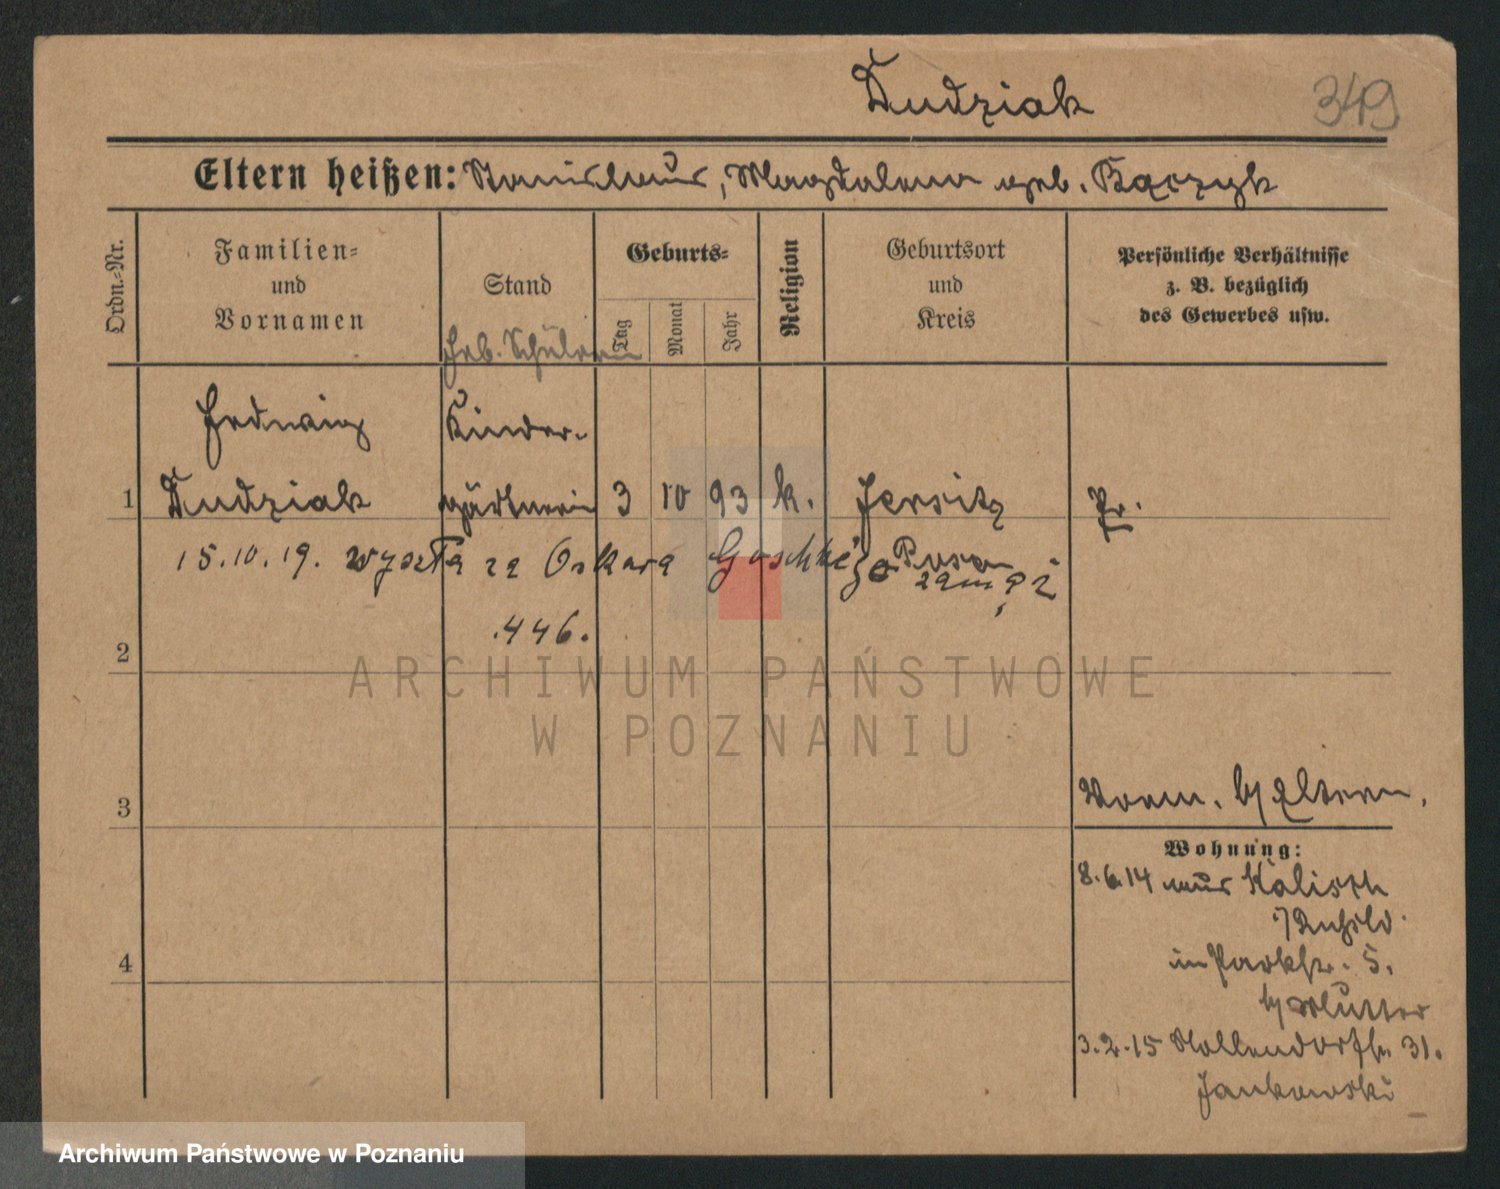 Dudziak
349
Eltern heißen: Stanislaus, Magdalena geb. Kączyk
Ordn.-Nr.
Familien-
und
Vornamen
Stand
Geburts-
Tag
Monat
Jahr
Religion
Geburtsort
und
Kreis
Persönliche Verhältnisse
z. B. bezüglich
des Gewerbes usw.
Schülerin
Hedwig
Kinder-
1
Dudziak
gärtnerin
3
10
93
k.
Jersitz
Pr.
15.10.19. wyszła za Oskara Goschke
Posen
zam.
446.
2
3
4
Vorm. b/ Eltern.
Wohnung:
8.6.14 aus Kalisch
i/Rußld.
in Parkstr. 5.
b/ Mutter
3.2.15 Nollendorfstr. 31.
Jankowski
ARCHIWUM PAŃSTWOWE
W POZNANIU
Archiwum Państwowe w Poznaniu